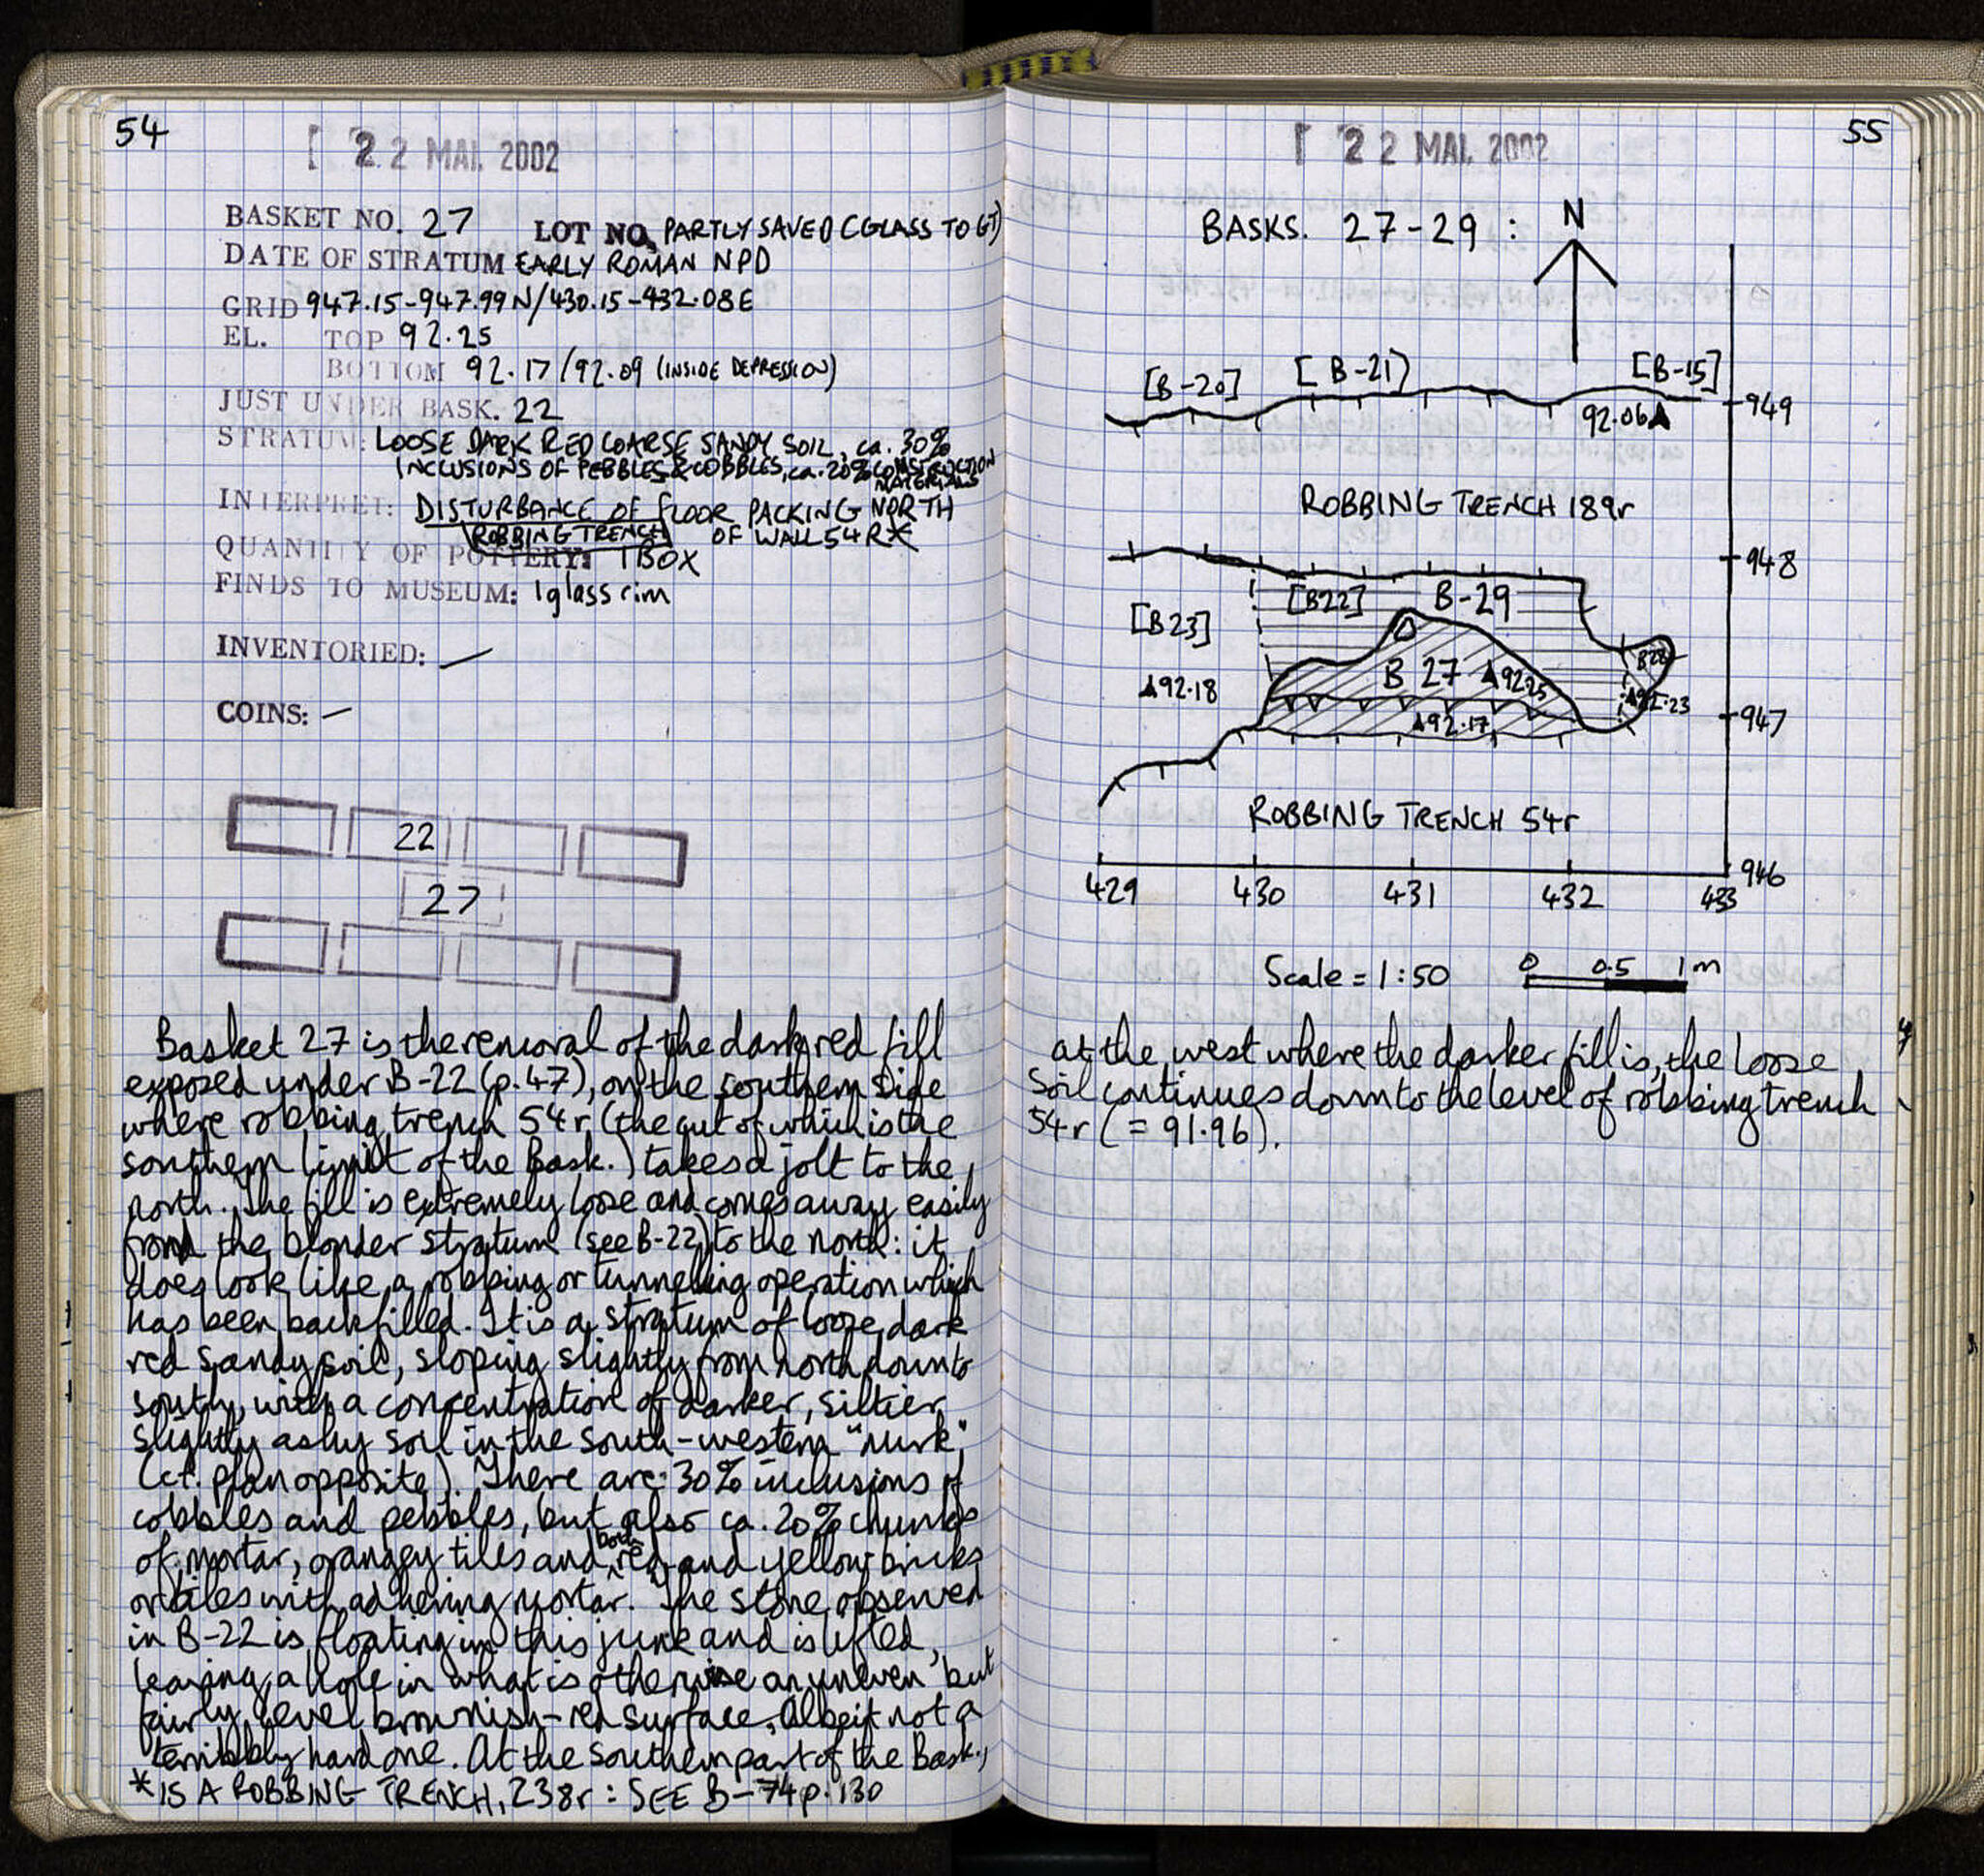 54
22 MAI. 2002
BASKET NO. 27 LOT NO. PARTLY SAVED (GLASS TO GT)
DATE OF STRATUM EARLY ROMAN NPD
GRID 947.15-947.99N/430.15-432.08E
EL. TOP 92.25
BOTTOM 92.17/92.09 (INSIDE DEPRESSION)
JUST UNDER BASK. 22
STRATUM: LOOSE DARK RED COARSE SANDY SOIL, ca. 30%
INCLUSIONS OF PEBBLES & COBBLES, ca. 20% CONSTRUCTION
MATERIALS
INTERPRET: DISTURBANCE OF FLOOR PACKING NORTH
ROBBING TRENCH OF WALL 54R*
QUANTITY OF POTTERY: 1 BOX
FINDS TO MUSEUM: 1 glass rim
INVENTORIED: —
COINS: —
22
27
Basket 27 is the removal of the dark red fill
exposed under B-22 (p.47), on the southern side
where robbing trench 54r (the cut of which is the
southern limit of the Bask.) takes a jolt to the
north. The fill is extremely loose and comes away easily
from the blonder stratum (see B-22) to the north: it
does look like a robbing or tunnelling operation which
has been backfilled. It is a stratum of loose, dark
red sandy soil, sloping slightly from north down to
south, with a concentration of darker, siltier
slightly ashy soil in the south-western "nurk"
(cf. plan opposite). There are 30% inclusions of
cobbles and pebbles, but also ca. 20% chunks
of mortar, orangey tiles and both red and yellow bricks
or tiles with adhering mortar. The stone observed
in B-22 is floating in this junk and is lifted,
leaving a hole in what is otherwise an uneven but
fairly level brownish-red surface, albeit not a
terribly hard one. At the southern part of the Bask.,
* IS A ROBBING TRENCH, 238r: SEE B-74 p. 130
55
22 MAI. 2002
BASKS. 27-29 : N
[B-20] [B-21] [B-15]
949
92.06
ROBBING TRENCH 189r
948
[B22] B-29
[B23]
B28
B 27 92.25
92.18
92.23
92.17
947
ROBBING TRENCH 54r
946
429 430 431 432 433
Scale = 1:50 0 0.5 1m
at the west where the darker fill is, the loose
soil continues down to the level of robbing trench
54r (= 91.96).